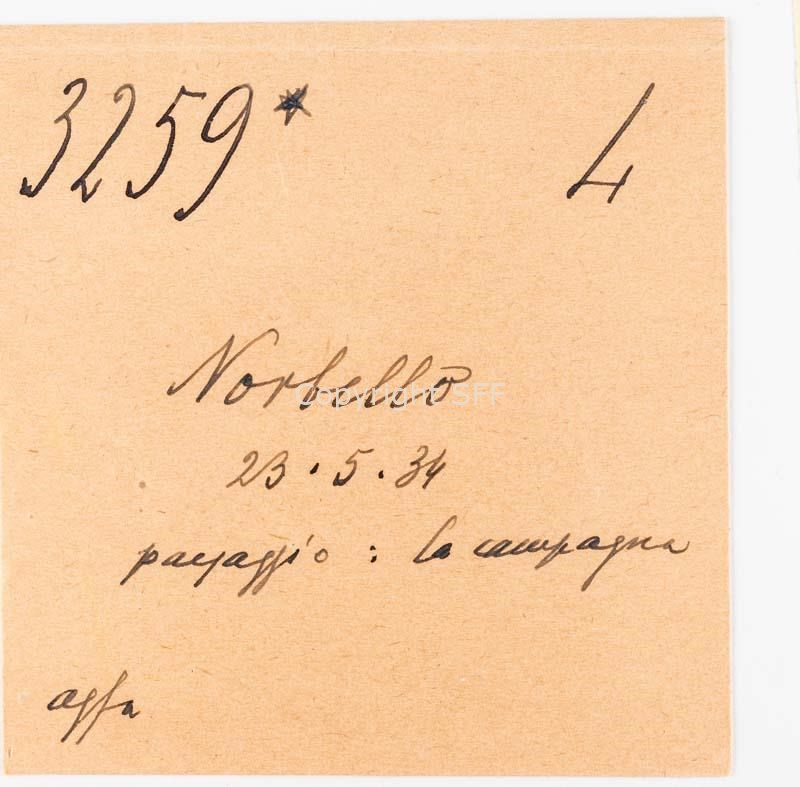 3259* 4
Norbello
23.5.34
paesaggio: la campagna
agfa
Copyright SFF